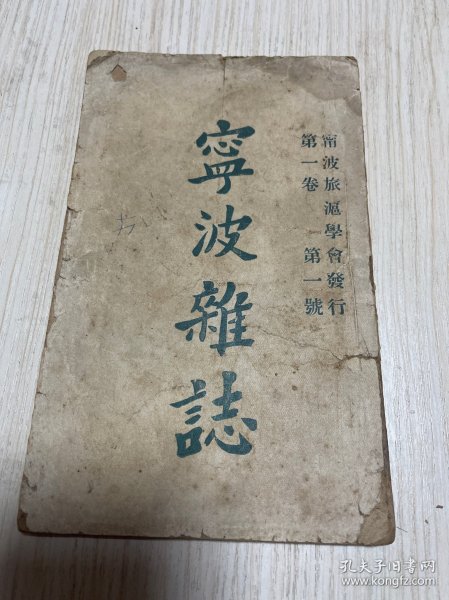 甯波旅滬學會發行
第一卷 第一號
寧波雜誌
孔夫子旧书网
www.kongfz.com